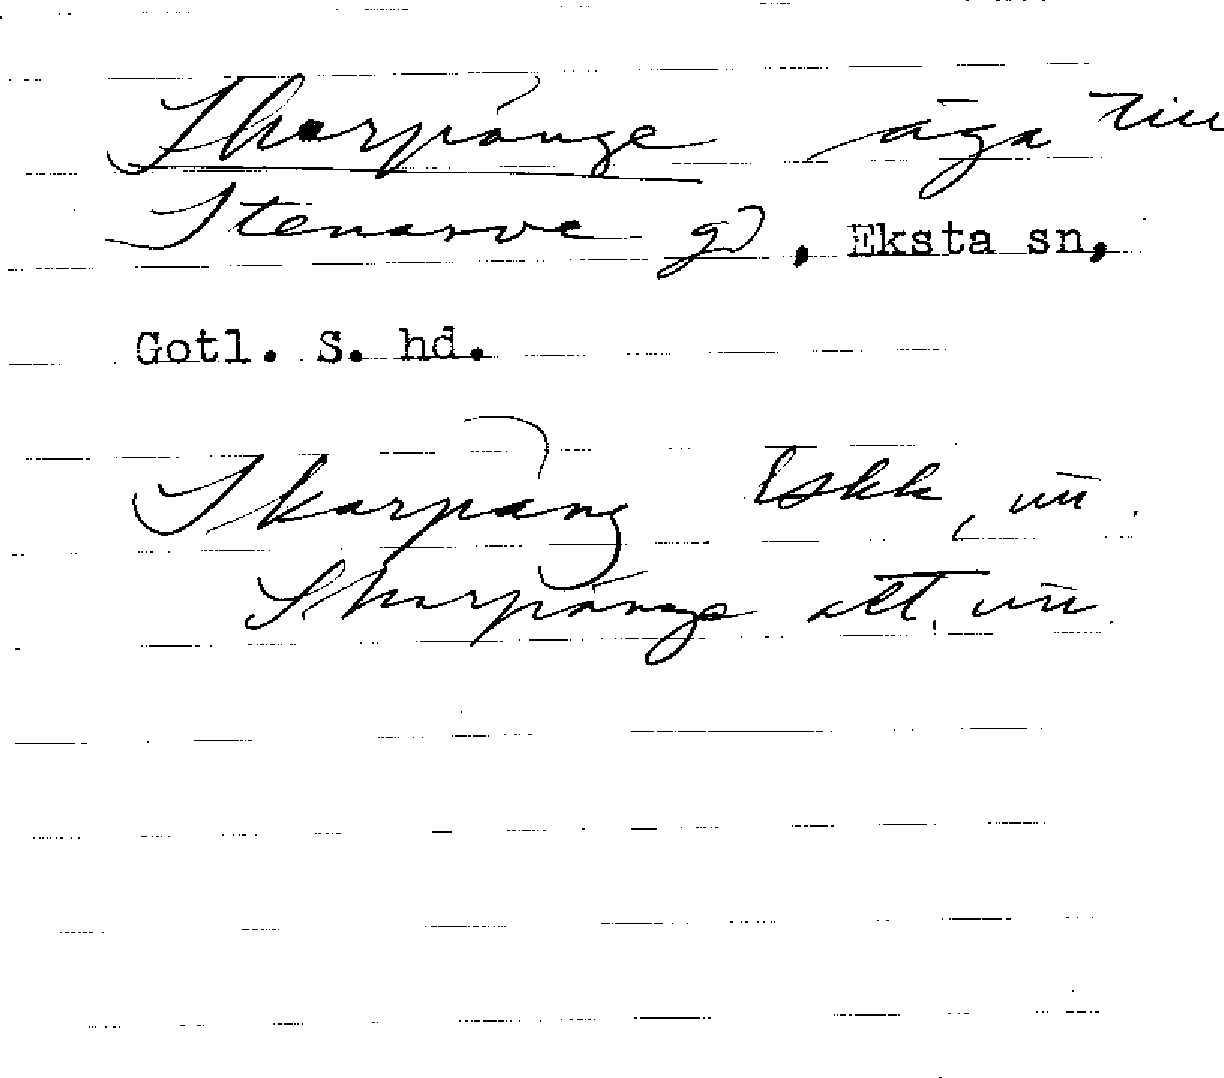 Skarpänge äga till
Stenarve gd, Eksta sn,
Gotl. S. hd.
Skarpäng Eskk
Skarpänge alt.